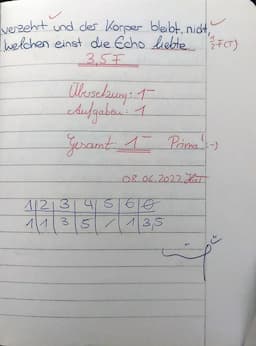 verzehrt und der Körper bleibt, nicht,
welchen einst die Echo liebte. ½F(T)
3,5 F
Übersetzung: 1-
Aufgaben: 1
Gesamt 1- Prima! :-)
08.06.2022
1 | 2 | 3 | 4 | 5 | 6 | Ø
1 | 1 | 3 | 5 | / | 1 | 3,5